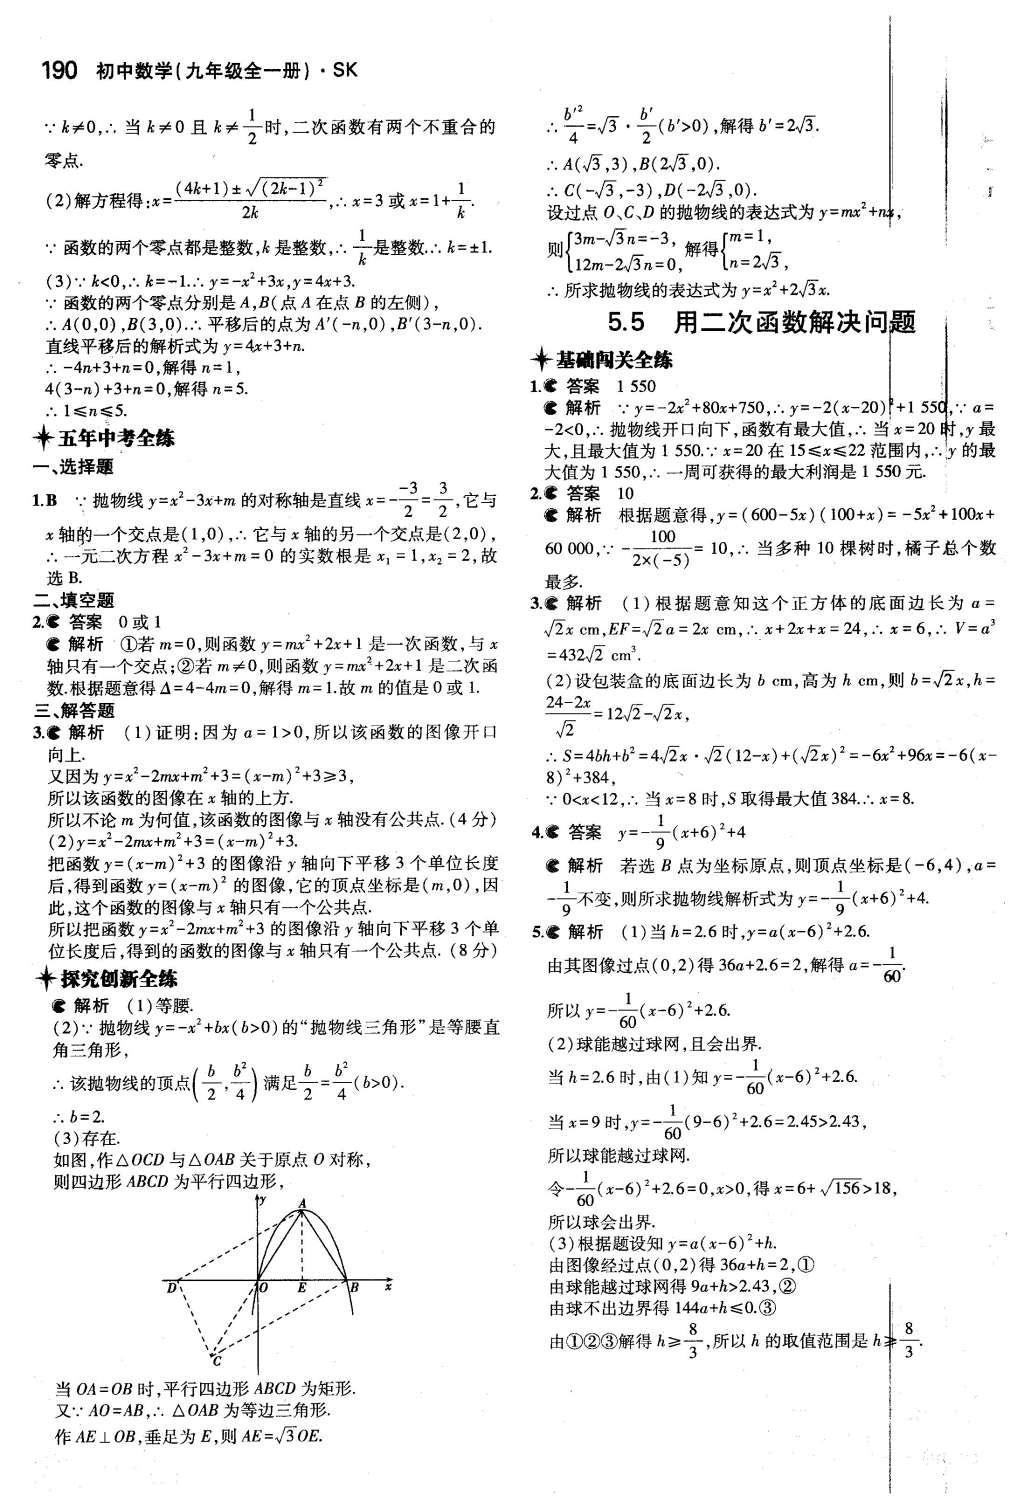 190 初中数学(九年级全一册)·SK
∵k≠0,∴当 k≠0 且 k≠1/2时,二次函数有两个不重合的
零点.
(2)解方程得:x=((4k+1)±√(2k-1)²)/2k,∴x=3 或 x=1+1/k.
∵函数的两个零点都是整数,k 是整数,∴1/k是整数.∴k=±1.
(3)∵k<0,∴k=-1.∴y=-x²+3x,y=4x+3.
∵函数的两个零点分别是 A,B(点 A 在点 B 的左侧),
∴A(0,0),B(3,0).∴平移后的点为 A′(-n,0),B′(3-n,0).
直线平移后的解析式为 y=4x+3+n.
∴-4n+3+n=0,解得 n=1,
4(3-n)+3+n=0,解得 n=5.
∴1≤n≤5.
五年中考全练
一、选择题
1.B ∵抛物线 y=x²-3x+m 的对称轴是直线 x=-(-3)/2=3/2,它与
x 轴的一个交点是(1,0),∴它与 x 轴的另一个交点是(2,0),
∴一元二次方程 x²-3x+m=0 的实数根是 x₁=1,x₂=2,故
选 B.
二、填空题
2. 答案 0 或 1
解析 ①若 m=0,则函数 y=mx²+2x+1 是一次函数,与 x
轴只有一个交点;②若 m≠0,则函数 y=mx²+2x+1 是二次函
数.根据题意得 Δ=4-4m=0,解得 m=1.故 m 的值是 0 或 1.
三、解答题
3. 解析 (1)证明:因为 a=1>0,所以该函数的图像开口
向上.
又因为 y=x²-2mx+m²+3=(x-m)²+3≥3,
所以该函数的图像在 x 轴的上方.
所以不论 m 为何值,该函数的图像与 x 轴没有公共点.(4 分)
(2)y=x²-2mx+m²+3=(x-m)²+3.
把函数 y=(x-m)²+3 的图像沿 y 轴向下平移 3 个单位长度
后,得到函数 y=(x-m)² 的图像,它的顶点坐标是(m,0),因
此,这个函数的图像与 x 轴只有一个公共点.
所以把函数 y=x²-2mx+m²+3 的图像沿 y 轴向下平移 3 个单
位长度后,得到的函数的图像与 x 轴只有一个公共点.(8 分)
探究创新全练
解析 (1)等腰.
(2)∵抛物线 y=-x²+bx(b>0)的“抛物线三角形”是等腰直
角三角形,
∴该抛物线的顶点(b/2,b²/4)满足b/2=b²/4(b>0).
∴b=2.
(3)存在.
如图,作△OCD 与△OAB 关于原点 O 对称,
则四边形 ABCD 为平行四边形,
y
A
D O E B x
C
当 OA=OB 时,平行四边形 ABCD 为矩形.
又∵AO=AB,∴△OAB 为等边三角形.
作 AE⊥OB,垂足为 E,则 AE=√3OE.
∴b′²/4=√3·b′/2(b′>0),解得 b′=2√3.
∴A(√3,3),B(2√3,0).
∴C(-√3,-3),D(-2√3,0).
设过点 O、C、D 的抛物线的表达式为 y=mx²+nx,
则{3m-√3n=-3, 12m-2√3n=0,解得{m=1, n=2√3,
∴所求抛物线的表达式为 y=x²+2√3x.
5.5 用二次函数解决问题
基础闯关全练
1. 答案 1 550
解析 ∵y=-2x²+80x+750,∴y=-2(x-20)²+1 550,∵a=
-2<0,∴抛物线开口向下,函数有最大值,∴当 x=20 时,y 最
大,且最大值为 1 550.∵x=20 在 15≤x≤22 范围内,∴y 的最
大值为 1 550,∴一周可获得的最大利润是 1 550 元.
2. 答案 10
解析 根据题意得,y=(600-5x)(100+x)=-5x²+100x+
60 000,∵-100/(2×(-5))=10,∴当多种 10 棵树时,橘子总个数
最多.
3. 解析 (1)根据题意知这个正方体的底面边长为 a=
√2x cm,EF=√2a=2x cm,∴x+2x+x=24,∴x=6,∴V=a³
=432√2 cm³.
(2)设包装盒的底面边长为 b cm,高为 h cm,则 b=√2x,h=
(24-2x)/√2=12√2-√2x,
∴S=4bh+b²=4√2x·√2(12-x)+(√2x)²=-6x²+96x=-6(x-
8)²+384,
∵0<x<12,∴当 x=8 时,S 取得最大值 384.∴x=8.
4. 答案 y=-1/9(x+6)²+4
解析 若选 B 点为坐标原点,则顶点坐标是(-6,4),a=
-1/9不变,则所求抛物线解析式为 y=-1/9(x+6)²+4.
5. 解析 (1)当 h=2.6 时,y=a(x-6)²+2.6.
由其图像过点(0,2)得 36a+2.6=2,解得 a=-1/60.
所以 y=-1/60(x-6)²+2.6.
(2)球能越过球网,且会出界.
当 h=2.6 时,由(1)知 y=-1/60(x-6)²+2.6.
当 x=9 时,y=-1/60(9-6)²+2.6=2.45>2.43,
所以球能越过球网.
令-1/60(x-6)²+2.6=0,x>0,得 x=6+√156>18,
所以球会出界.
(3)根据题设知 y=a(x-6)²+h.
由图像经过点(0,2)得 36a+h=2,①
由球能越过球网得 9a+h>2.43,②
由球不出边界得 144a+h≤0.③
由①②③解得 h≥8/3,所以 h 的取值范围是 h≥8/3.